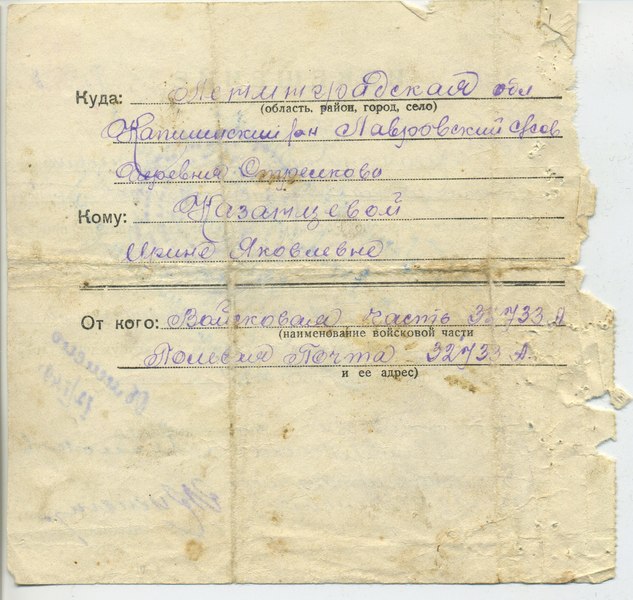 Куда: Ленинградская обл
(область, район, город, село)
Капшинский рн Лавровский с/сов
Деревня Стрелково
Кому: Казанцевой
Ирине Яковлевне
От кого: Войсковая часть 32733 А
(наименование войсковой части
Полевая Почта 32733 А.
и ее адрес)